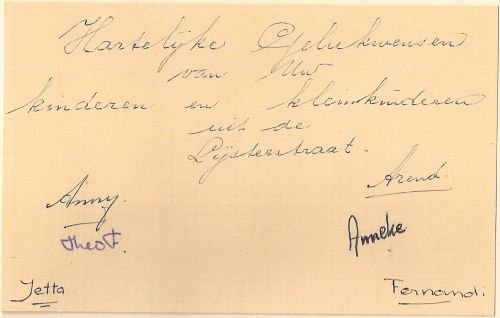 Hartelijke Gelukwensen
van Uw
kinderen en kleinkinderen
uit de
Lijsterstraat.
Anny. Arend.
Theo F. Anneke
Jetta Fernandi